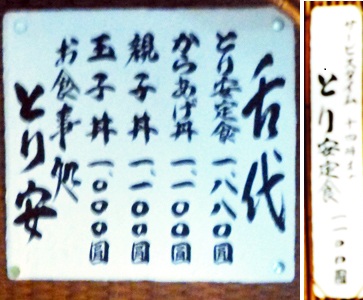 舌代
とり安定食 一、八八〇圓
からあげ丼 一、一〇〇圓
親子丼 一、一〇〇圓
玉子丼 一、〇〇〇圓
お食事処
とり安
とり安定食 一、一〇〇圓